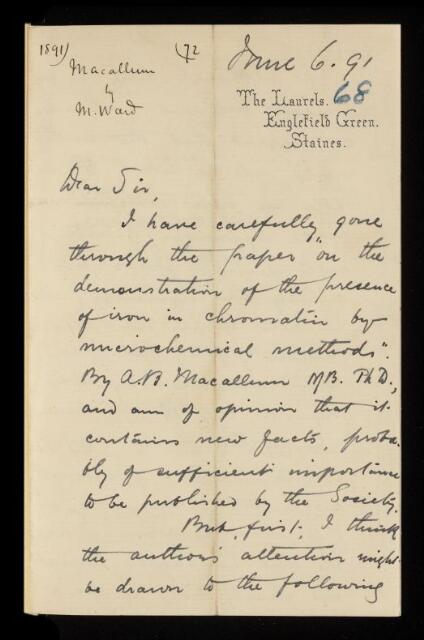 1891) (72 June 6. 91
Macallum
by
M. Ward
68
The Laurels.
Englefield Green.
Staines.
Dear Sir,
I have carefully gone
through the paper "on the
demonstration of the presence
of iron in chromatin by
microchemical methods".
By A.B. Macallum MB. Ph D.,
and am of opinion that it
contains new facts, proba-
bly of sufficient importance
to be published by the Society.
But, first, I think
the author's attention might
be drawn to the following